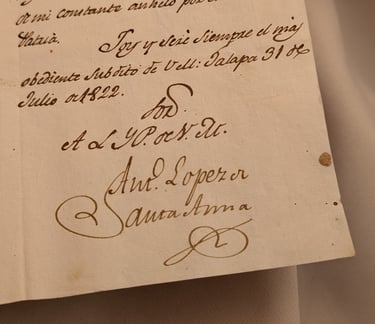 de mi constante anhelo por el
Patria. Soy y seré siempre el mas
obediente Subdito de V.M. Jalapa 31 de
Julio de 1822.
A L. I. P. de V. M.
Ant.º Lopez de
Santa Anna